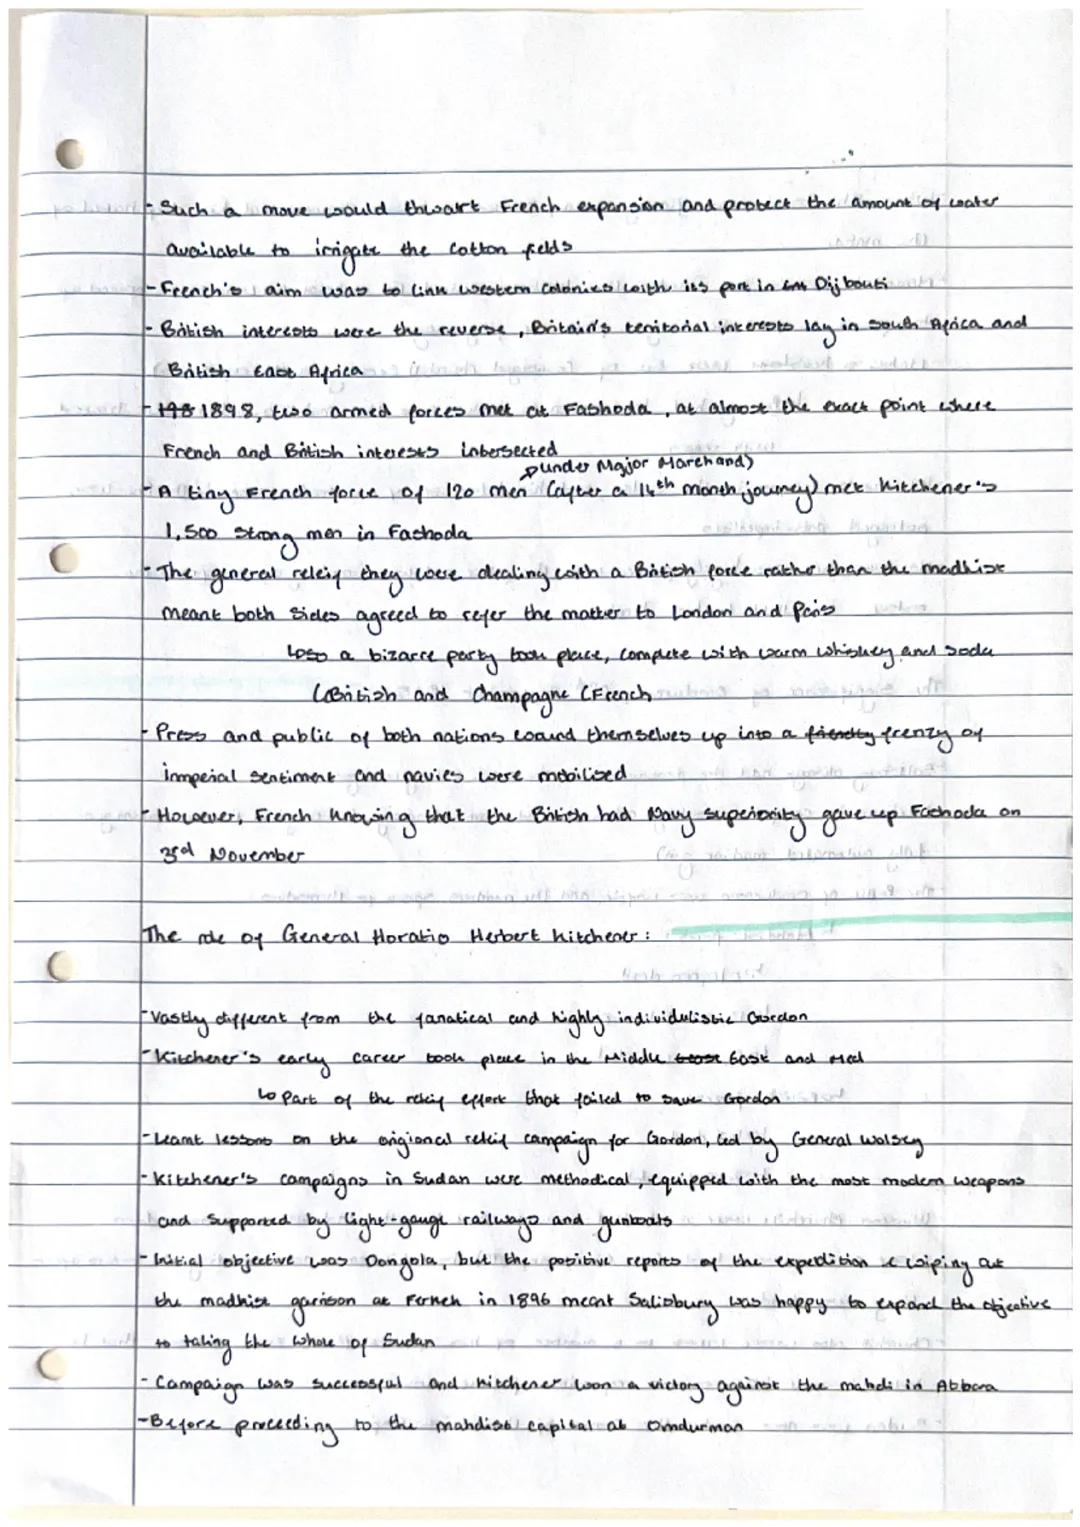 - Such a move would thwart French expansion and protect the amount of water
available to irrigate the cotton fields
- French's aim was to link western colonies with its port in Dijbouti
- British interests were the reverse, Britain's territorial interests lay in South Africa and
British East Africa
- 1898, two armed forces met at Fashoda, at almost the exact point where
French and British interests intersected
under Major Marchand)
- A tiny French force of 120 men (after a 14th month journey) met Kitchener's
1,500 strong men in Fashoda
- The general releif they were dealing with a British force rather than the madhist
meant both sides agreed to refer the matter to London and Paris
↳ so a bizarre party took place, complete with warm whiskey and soda
(British and Champagne (French
- Press and public of both nations wound themselves up into a friendly frenzy of
imperial sentiment and navies were mobilised
- However, French knowing that the British had Navy superiority gave up Fashoda on
3rd November
The role of General Horatio Herbert Kitchener:
- Vastly different from the fanatical and highly individulistic Gordon
- Kitchener's early career took place in the Middle East and Med
↳ Part of the releif effort that failed to save Gordon
- Learnt lessons on the origional releif campaign for Gordon, led by General Wolsey
- Kitchener's campaigns in Sudan were methodical, equipped with the most modern weapons
and supported by light-gauge railways and gunboats
- Initial objective was Dongola, but the positive reports of the expedition wiping out
the madhist garrison at Ferkeh in 1896 meant Salisbury was happy to expand the objective
to taking the whole of Sudan
- Campaign was successful and Kitchener won a victory against the mahdi in Atbara
- Before proceeding to the mahdist capital at Omdurman